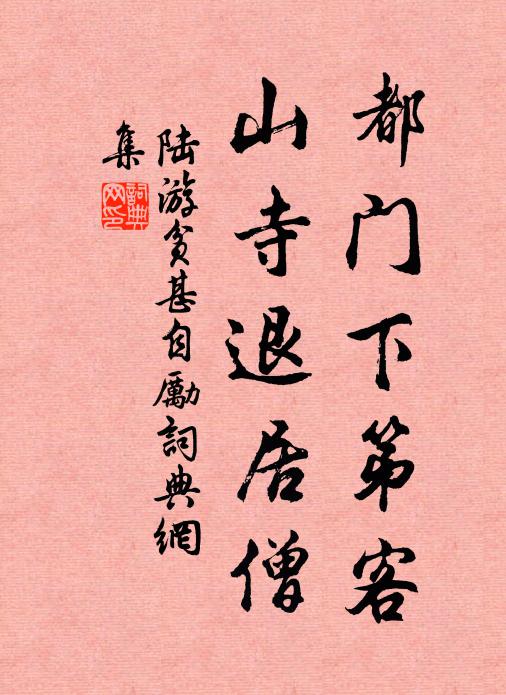 都门下第客
山寺退居僧
陆游贫甚自励詞典網
集
詞典網印